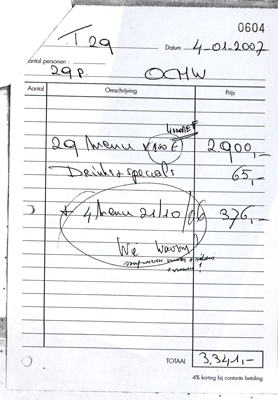 0604
T 29
Datum 4-01-2007
antal personen :
29 p.
OCMW
Aantal Omschrijving Prijs
29 Menu x 100 € 2900,-
Drink + specials 65,-
+ 4 Menu 21/10/06 376,-
Wie waren
TOTAAL 3.341,-
-4% korting bij contante betaling